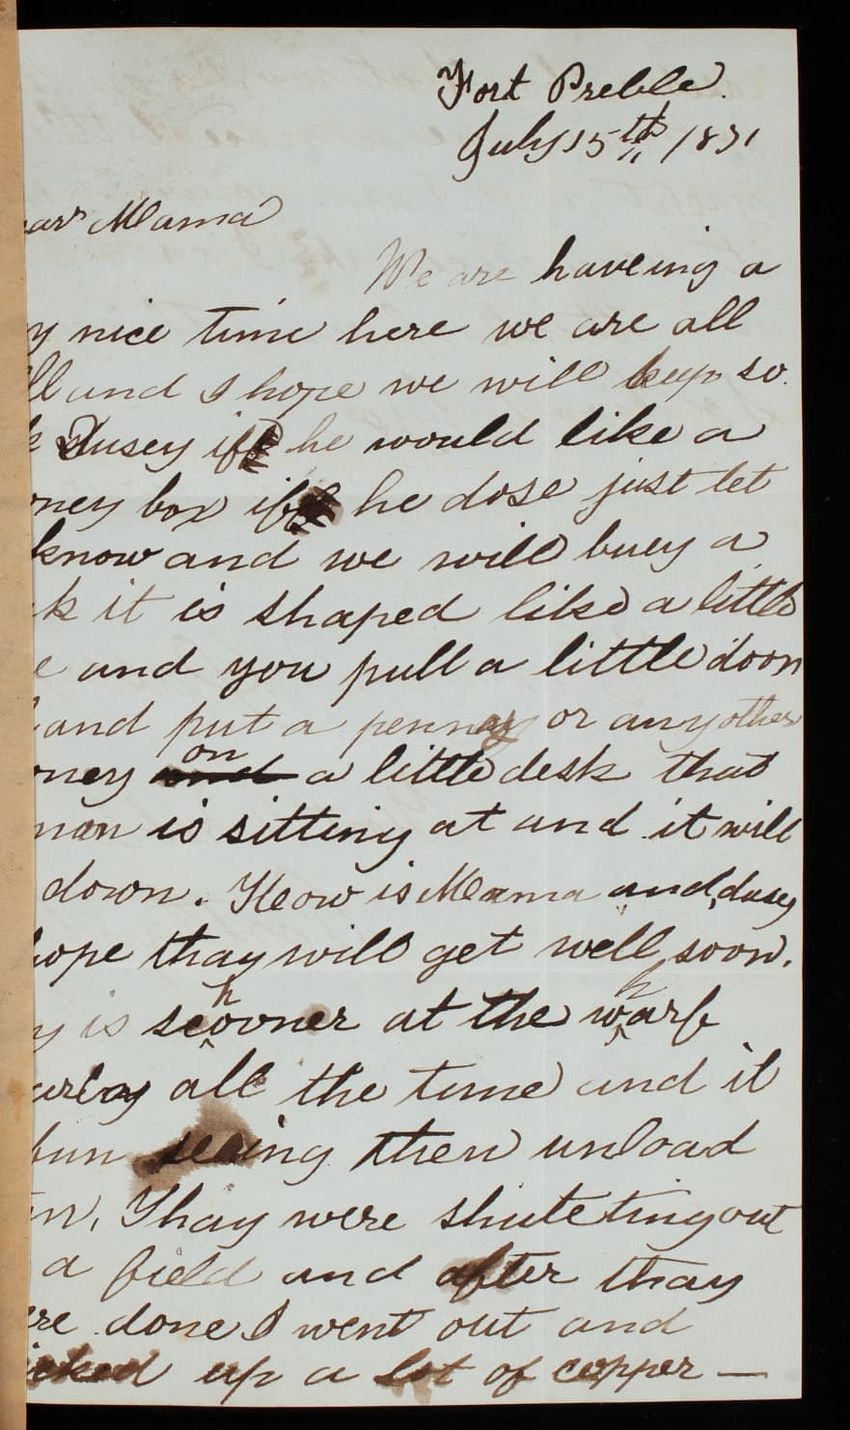 Fort Preble.
July 15th / 1871
ar Mama
We are haveing a
y nice time here we are all
ll and I hope we will keep so.
k Dusey if he would like a
ney box if he dose just let
know and we will buey a
k it is shaped like a little
e and you pull a little door
and put a penny or any other
ney and on a little desk that
man is sitting at and it will
down. How is Mama and dusey
hope thay will get well soon.
y is schooner at the wharf
all the time and it
fun seeing then unload
Thay were shuteting out
a field and after thay
ere done I went out and
icked up a lot of copper —